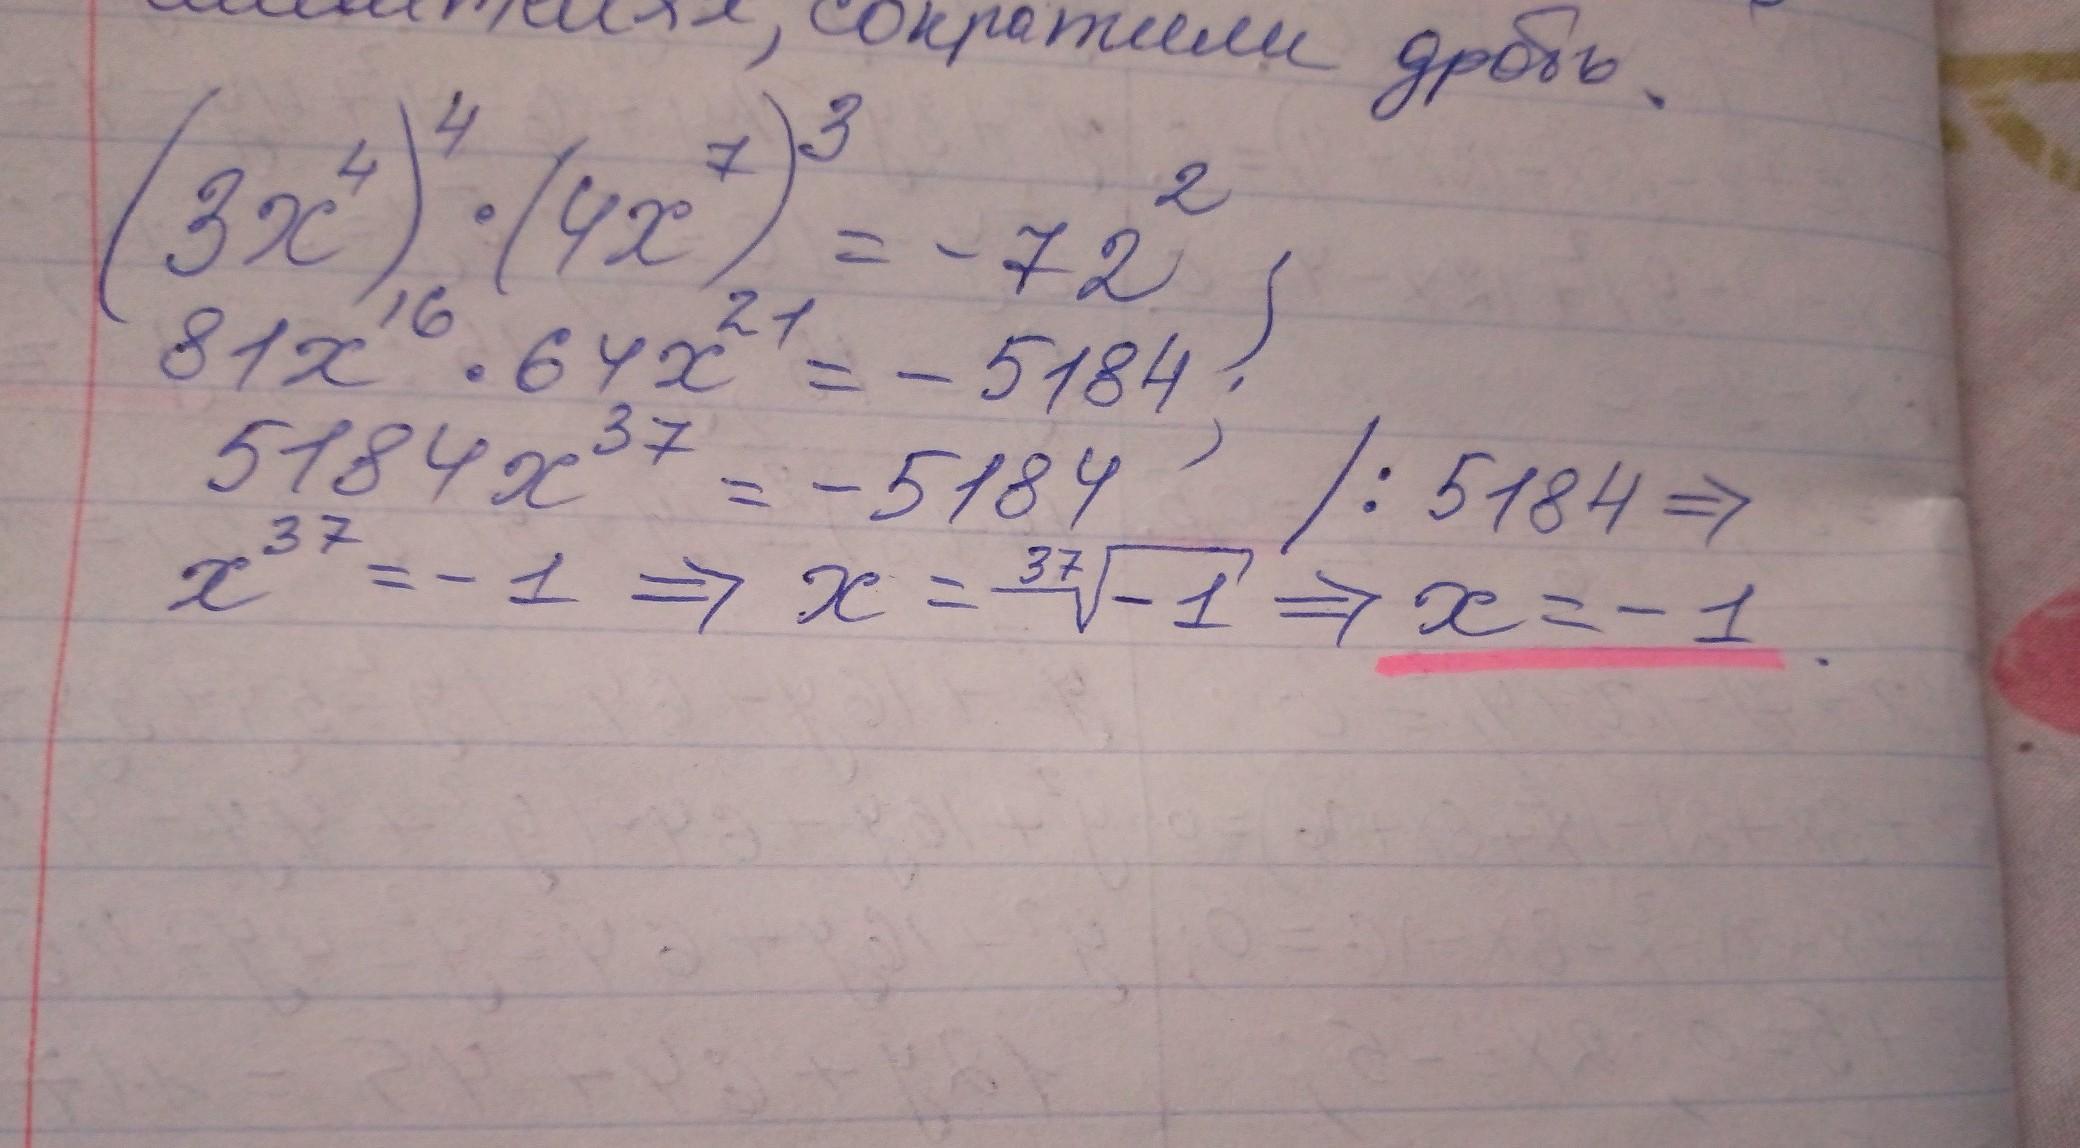 , сократили дробь.
(3x⁴)⁴ · (4x⁷)³ = -72² ;
81x¹⁶ · 64x²¹ = -5184 ;
5184x³⁷ = -5184 /: 5184 ⇒
x³⁷ = -1 ⇒ x = ³⁷√-1 ⇒ x = -1.